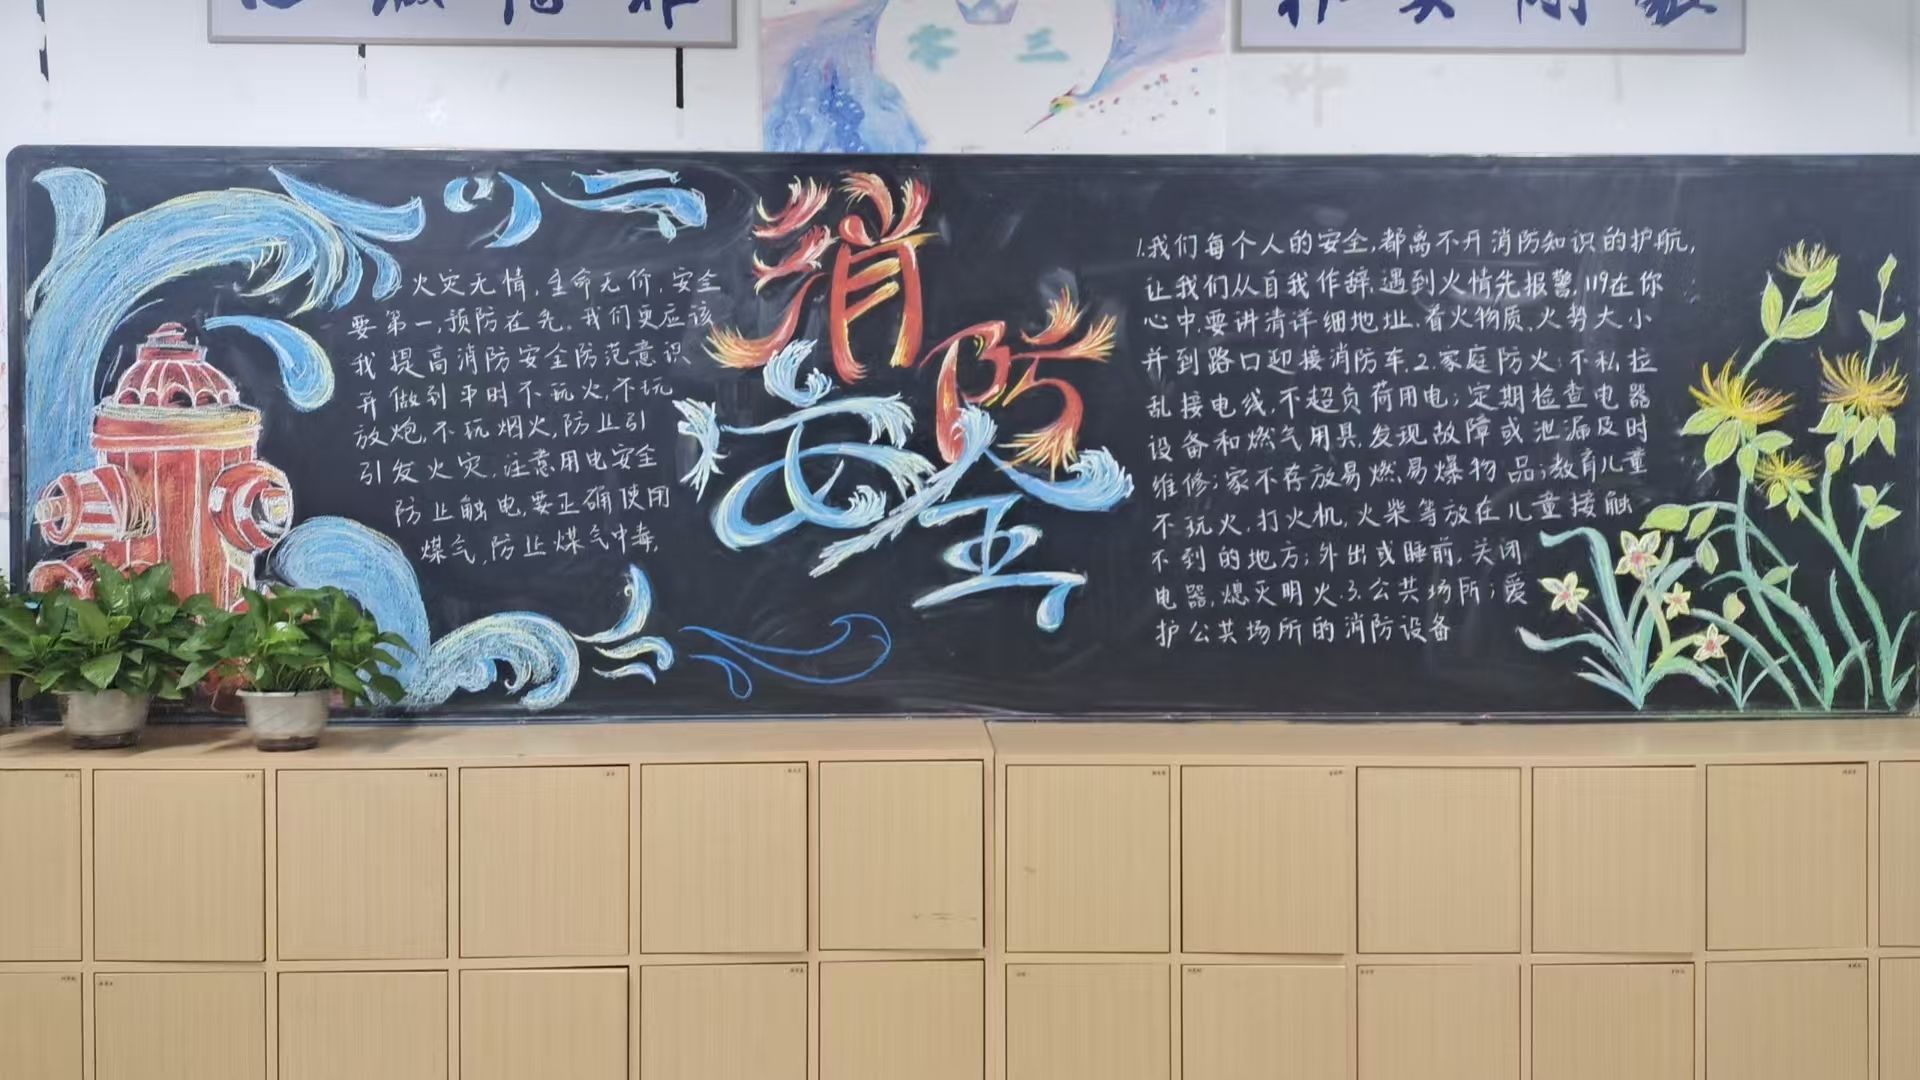 零三
火灾无情,生命无价,安全
要第一,预防在先,我们更应该
我提高消防安全防范意识
并做到平时不玩火,不玩
放炮,不玩烟火,防止引
引发火灾,注意用电安全
防止触电,要正确使用
煤气,防止煤气中毒,
消防
安全
1.我们每个人的安全,都离不开消防知识的护航,
让我们从自我作辞,遇到火情先报警,119在你
心中,要讲清详细地址,着火物质,火势大小
并到路口迎接消防车,2.家庭防火:不私拉
乱接电线,不超负荷用电;定期检查电器
设备和燃气用具,发现故障或泄漏及时
维修;家不存放易燃,易爆物品;教育儿童
不玩火,打火机,火柴等放在儿童接触
不到的地方;外出或睡前,关闭
电器,熄灭明火.3.公共场所;爱
护公共场所的消防设备